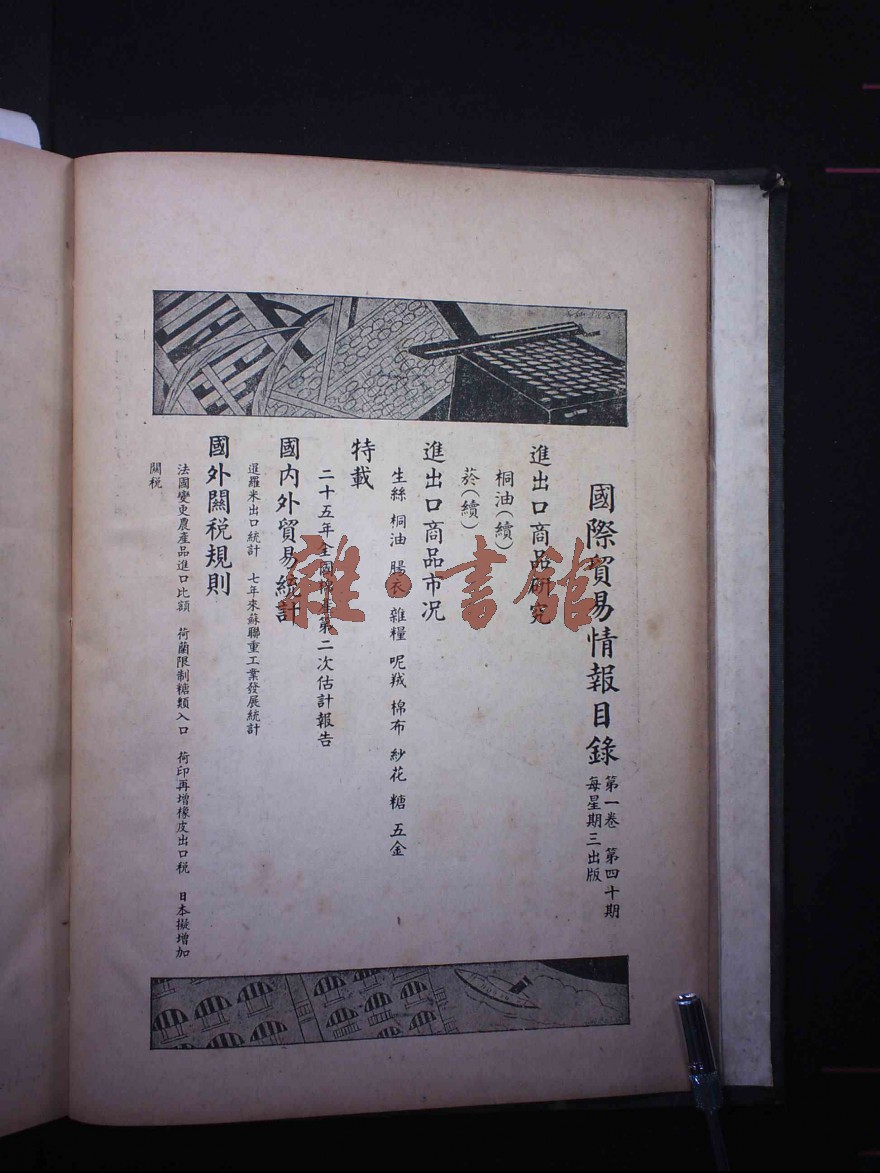 國際貿易情報目錄
第一卷 第四十期
每星期三出版
進出口商品研究
桐油(續)
菸(續)
進出口商品市况
生絲 桐油 腸衣 雜糧 呢羢 棉布 紗花 糖 五金
特載
二十五年全國棉產第二次估計報告
國内外貿易統計
暹羅米出口統計 七年來蘇聯重工業發展統計
國外關稅規則
法國變更農產品進口比額 荷蘭限制糖類入口 荷印再增橡皮出口稅 日本擬增加
關稅
雜·書館